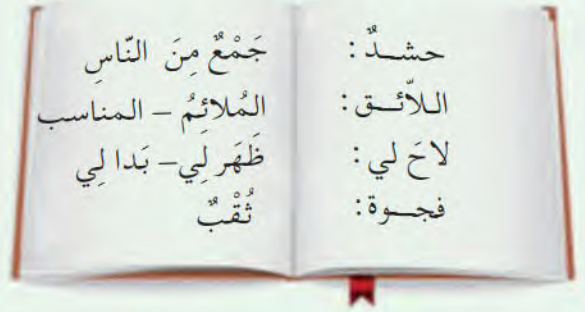 حشــدٌ : جَمْعٌ مِنَ النّاسِ
اللاّئــق : المُلائِمُ – المناسب
لاحَ لي : ظَهَر لِي – بَدا لِي
فجــوة : ثُقْبٌ